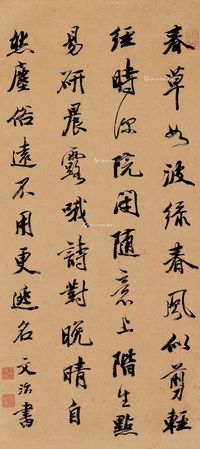 春草如波綠春風似剪輕
經時深院閉隨意上階生點
易研晨露哦詩對晚晴自
然塵俗遠不用更逃名 文治書